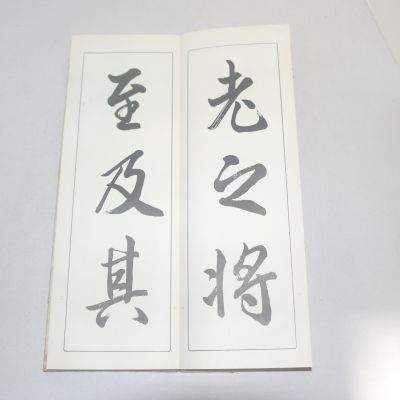 老之将
至及其